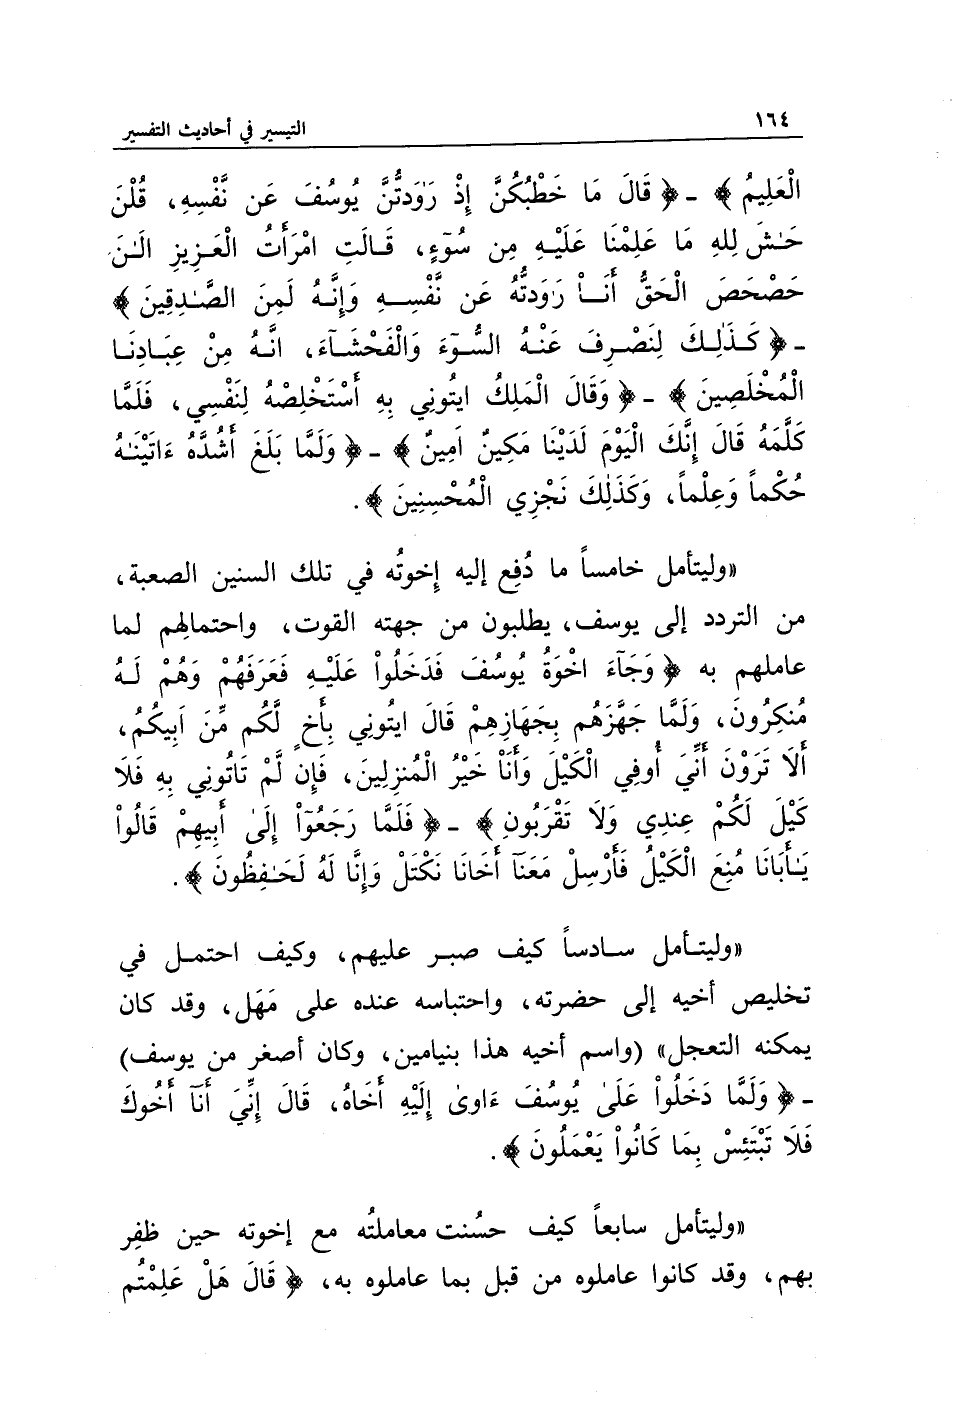 ١٦٤
التيسير في أحاديث التفسير
الْعَلِيمُ ﴾ ـ ﴿ قَالَ مَا خَطْبُكُنَّ إِذْ رَٰوَدتُّنَّ يُوسُفَ عَن نَّفْسِهِ، قُلْنَ
حَـٰشَ لِلهِ مَا عَلِمْنَا عَلَيْهِ مِن سُوٓءٍ، قَـالَتِ امْرَأَتُ الْعَزِيزِ الَـٰنَ
حَصْحَصَ الْحَقُّ أَنَـاْ رَٰوَدتُّهُ عَن نَّفْسِـهِ وَإِنَّـهُ لَمِنَ الصَّـٰدِقِينَ ﴾
ـ ﴿ كَـذَٰلِـكَ لِنَصْـرِفَ عَنْـهُ السُّوٓءَ وَالْفَحْشَـآءَ، انَّـهُ مِنْ عِبَـادِنَـا
الْمُخْلَصِينَ ﴾ ـ ﴿ وَقَالَ الْمَلِكُ ايتُونِي بِهِ أَسْتَخْلِصْهُ لِنَفْسِي، فَلَمَّا
كَلَّمَهُ قَالَ إِنَّكَ الْيَوْمَ لَدَيْنَا مَكِينٌ اَمِينٌ ﴾ ـ ﴿ وَلَمَّا بَلَغَ أَشُدَّهُ ءَاتَيْنَـٰهُ
حُكْماً وَعِلْماً، وَكَذَٰلِكَ نَجْزِي الْمُحْسِنِينَ ﴾.
«وليتأمل خامساً ما دُفِع إليه إخوتُه في تلك السنين الصعبة،
من التردد إلى يوسف، يطلبون من جهته القوت، واحتمالهم لما
عاملهم به ﴿ وَجَآءَ اخْوَةُ يُوسُفَ فَدَخَلُواْ عَلَيْـهِ فَعَرَفَهُمْ وَهُمْ لَـهُ
مُنكِرُونَ، وَلَمَّا جَهَّزَهُم بِجَهَازِهِمْ قَالَ ايتُونِي بِأَخٍ لَّكُم مِّنَ اَبِيكُمُ،
أَلَا تَرَوْنَ أَنِّيَ أُوفِي الْكَيْلَ وَأَنَاْ خَيْرُ الْمُنزِلِينَ، فَإِن لَّمْ تَاتُونِي بِهِ فَلَا
كَيْلَ لَكُمْ عِندِي وَلَا تَقْرَبُونِ ﴾ ـ ﴿ فَلَمَّا رَجَعُوٓاْ إِلَىٰ أَبِيهِمْ قَالُواْ
يَـٰأَبَانَا مُنِعَ الْكَيْلُ فَأَرْسِلْ مَعَنَآ أَخَانَا نَكْتَلْ وَإِنَّا لَهُ لَحَـٰفِظُونَ ﴾.
«وليتـأمل سـادسـاً كيف صبـر عليهم، وكيف احتمـل في
تخليص أخيه إلى حضرته، واحتباسه عنده على مَهَل، وقد كان
يمكنه التعجل» (واسم أخيه هذا بنيامين، وكان أصغر من يوسف)
ـ ﴿ وَلَمَّا دَخَلُواْ عَلَىٰ يُوسُفَ ءَاوىٰ إِلَيْهِ أَخَاهُ، قَالَ إِنِّيَ أَنَآ أَخُوكَ
فَلَا تَبْتَئِسْ بِمَا كَانُواْ يَعْمَلُونَ ﴾.
«وليتأمل سابعاً كيف حسُنت معاملتُه مع إخوته حين ظفِر
بهم، وقد كانوا عاملوه من قبل بما عاملوه به، ﴿ قَالَ هَلْ عَلِمْتُم